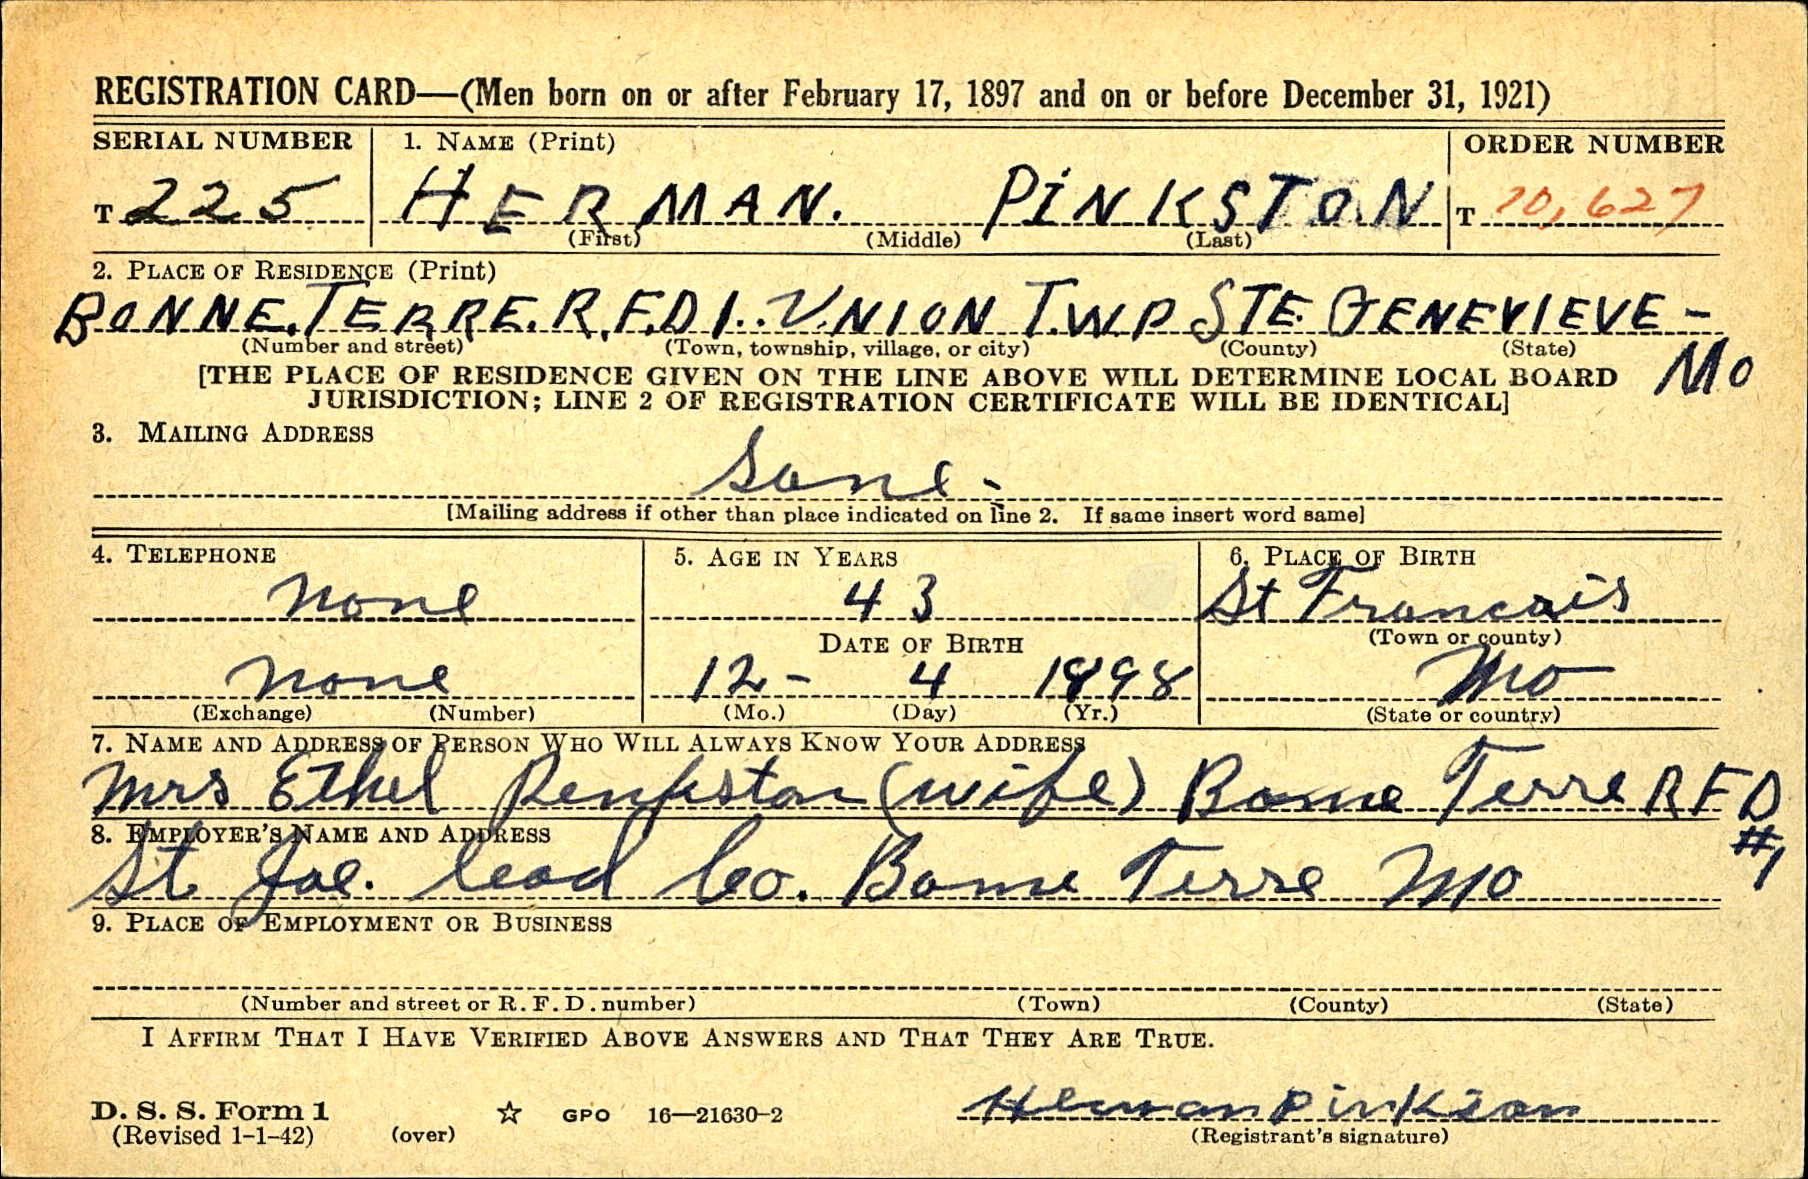 REGISTRATION CARD—(Men born on or after February 17, 1897 and on or before December 31, 1921)
SERIAL NUMBER 1. NAME (Print) ORDER NUMBER
T 225 HERMAN. PINKSTON T 10,627
(First) (Middle) (Last)
2. PLACE OF RESIDENCE (Print)
BONNE.TERRE.R.F.D1..UNION T.WP STE. GENEVIEVE -
(Number and street) (Town, township, village, or city) (County) (State)
MO
[THE PLACE OF RESIDENCE GIVEN ON THE LINE ABOVE WILL DETERMINE LOCAL BOARD
JURISDICTION; LINE 2 OF REGISTRATION CERTIFICATE WILL BE IDENTICAL]
3. MAILING ADDRESS
Same -
[Mailing address if other than place indicated on line 2. If same insert word same]
4. TELEPHONE 5. AGE IN YEARS 6. PLACE OF BIRTH
None 43 St Francais
(Town or county)
DATE OF BIRTH
None 12- 4 1898 Mo
(Exchange) (Number) (Mo.) (Day) (Yr.) (State or country)
7. NAME AND ADDRESS OF PERSON WHO WILL ALWAYS KNOW YOUR ADDRESS
Mrs Ethel Penkston (wife) Bonne Terre R F D
#1
8. EMPLOYER'S NAME AND ADDRESS
St Joe. Lead Co. Bonne Terre Mo
9. PLACE OF EMPLOYMENT OR BUSINESS
(Number and street or R. F. D. number) (Town) (County) (State)
I AFFIRM THAT I HAVE VERIFIED ABOVE ANSWERS AND THAT THEY ARE TRUE.
D. S. S. Form 1 ☆ GPO 16—21630-2 Herman Pinkston
(Revised 1-1-42) (over) (Registrant's signature)